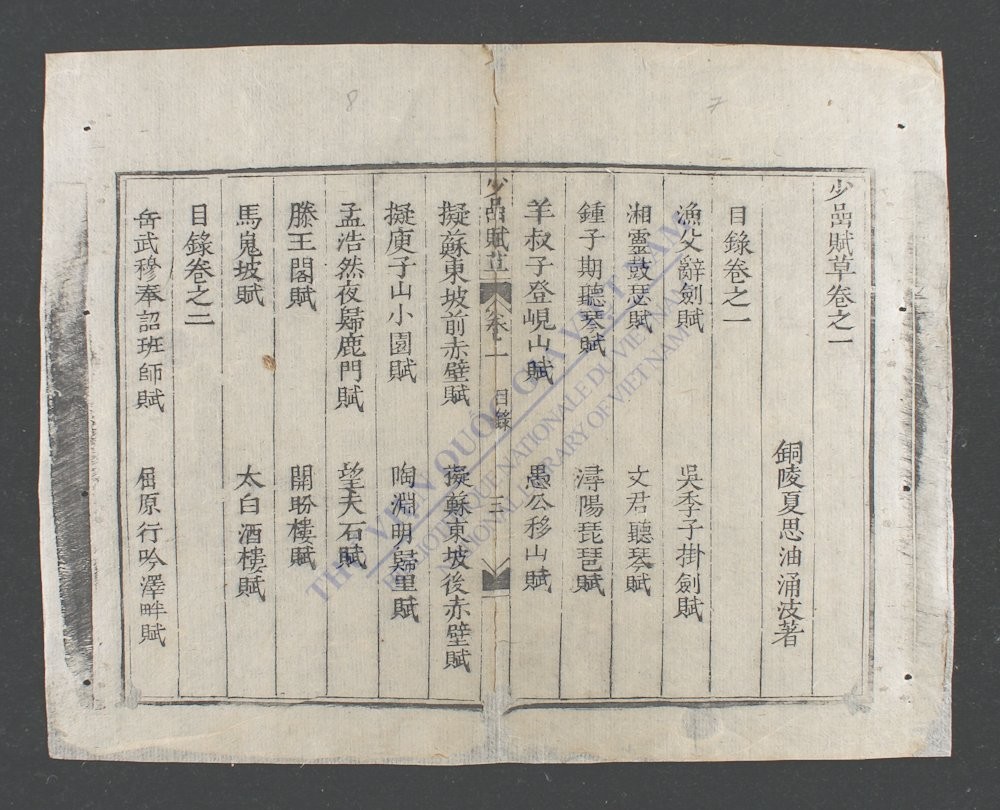 少嵒賦草卷之一
銅陵夏思沺涌波著
目錄卷之一
漁父辭劍賦 吳季子掛劍賦
湘靈鼓瑟賦 文君聽琴賦
鍾子期聽琴賦 潯陽琵琶賦
羊叔子登峴山賦 愚公移山賦
少嵒賦草 卷之一 目錄 三
擬蘇東坡前赤壁賦 擬蘇東坡後赤壁賦
擬庾子山小園賦 陶淵明歸里賦
孟浩然夜歸鹿門賦 望夫石賦
滕王閣賦 關盼樓賦
馬嵬坡賦 太白酒樓賦
目錄卷之二
岳武穆奉詔班師賦 屈原行吟澤畔賦
THƯ VIỆN QUỐC GIA VIỆT NAM
BIBLIOTHEQUE NATIONALE DU VIETNAM
NATIONAL LIBRARY OF VIETNAM
8
7